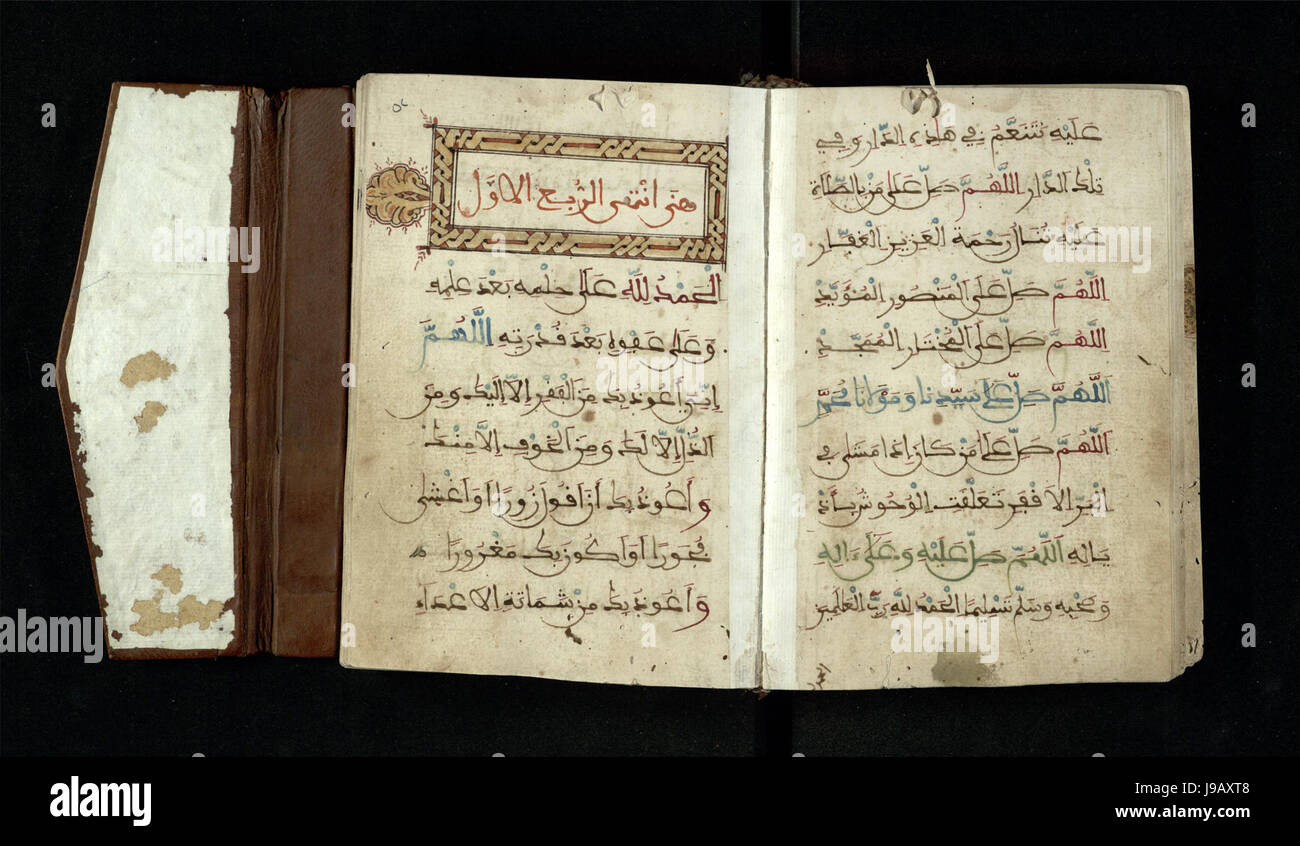 عَلَيْهِ نَتَنَعَّمُ فِي هَٰذِهِ الدَّارِ وَفِي
تِلْكَ الدَّارِ اللَّهُمَّ صَلِّ عَلَى مَنْ بِالصَّلَاةِ
عَلَيْهِ تُنَالُ رَحْمَةُ الْعَزِيزِ الْغَفَّارِ
اللَّهُمَّ صَلِّ عَلَى الْمَنْصُورِ الْمُؤَيَّدِ
اللَّهُمَّ صَلِّ عَلَى الْمُخْتَارِ الْمُمَجَّدِ
اللَّهُمَّ صَلِّ عَلَى سَيِّدِنَا وَمَوْلَانَا مُحَمَّدٍ
اللَّهُمَّ صَلِّ عَلَى مَنْ كَانَ إِذَا مَشَى فِي
الْبَرِّ الْأَقْفَرِ تَعَلَّقَتِ الْوُحُوشُ بِأَذْ
يَالِهِ اللَّهُمَّ صَلِّ عَلَيْهِ وَعَلَى ءَالِهِ
وَصَحْبِهِ وَسَلِّمْ تَسْلِيمًا الْحَمْدُ لِلَّهِ رَبِّ الْعَلَمِينَ
انْتَهَى الرُّبُعُ الْأَوَّلُ
الْحَمْدُ لِلَّهِ عَلَى حِلْمِهِ بَعْدَ عِلْمِهِ
وَعَلَى عَفْوِهِ بَعْدَ قُدْرَتِهِ اللَّهُمَّ
إِنِّي أَعُوذُ بِكَ مِنَ الْفَقْرِ إِلَّا إِلَيْكَ وَمِنَ
الذُّلِّ إِلَّا لَكَ وَمِنَ الْخَوْفِ إِلَّا مِنْكَ
وَأَعُوذُ بِكَ أَنْ أَقُولَ زُورًا أَوْ أَغْشَى
فُجُورًا أَوْ أَكُونَ بِكَ مَغْرُورًا
وَأَعُوذُ بِكَ مِنْ شَمَاتَةِ الْأَعْدَاءِ
alamy
Image ID: J9AXT8
www.alamy.com